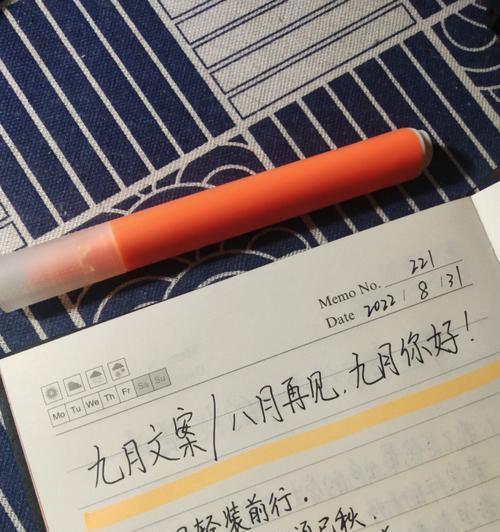 Memo No. 221
Date 2022 / 8 / 31
Mo Tu We Th Fr Sa Su
九月文案/八月再见,九月你好!
轻装前行.